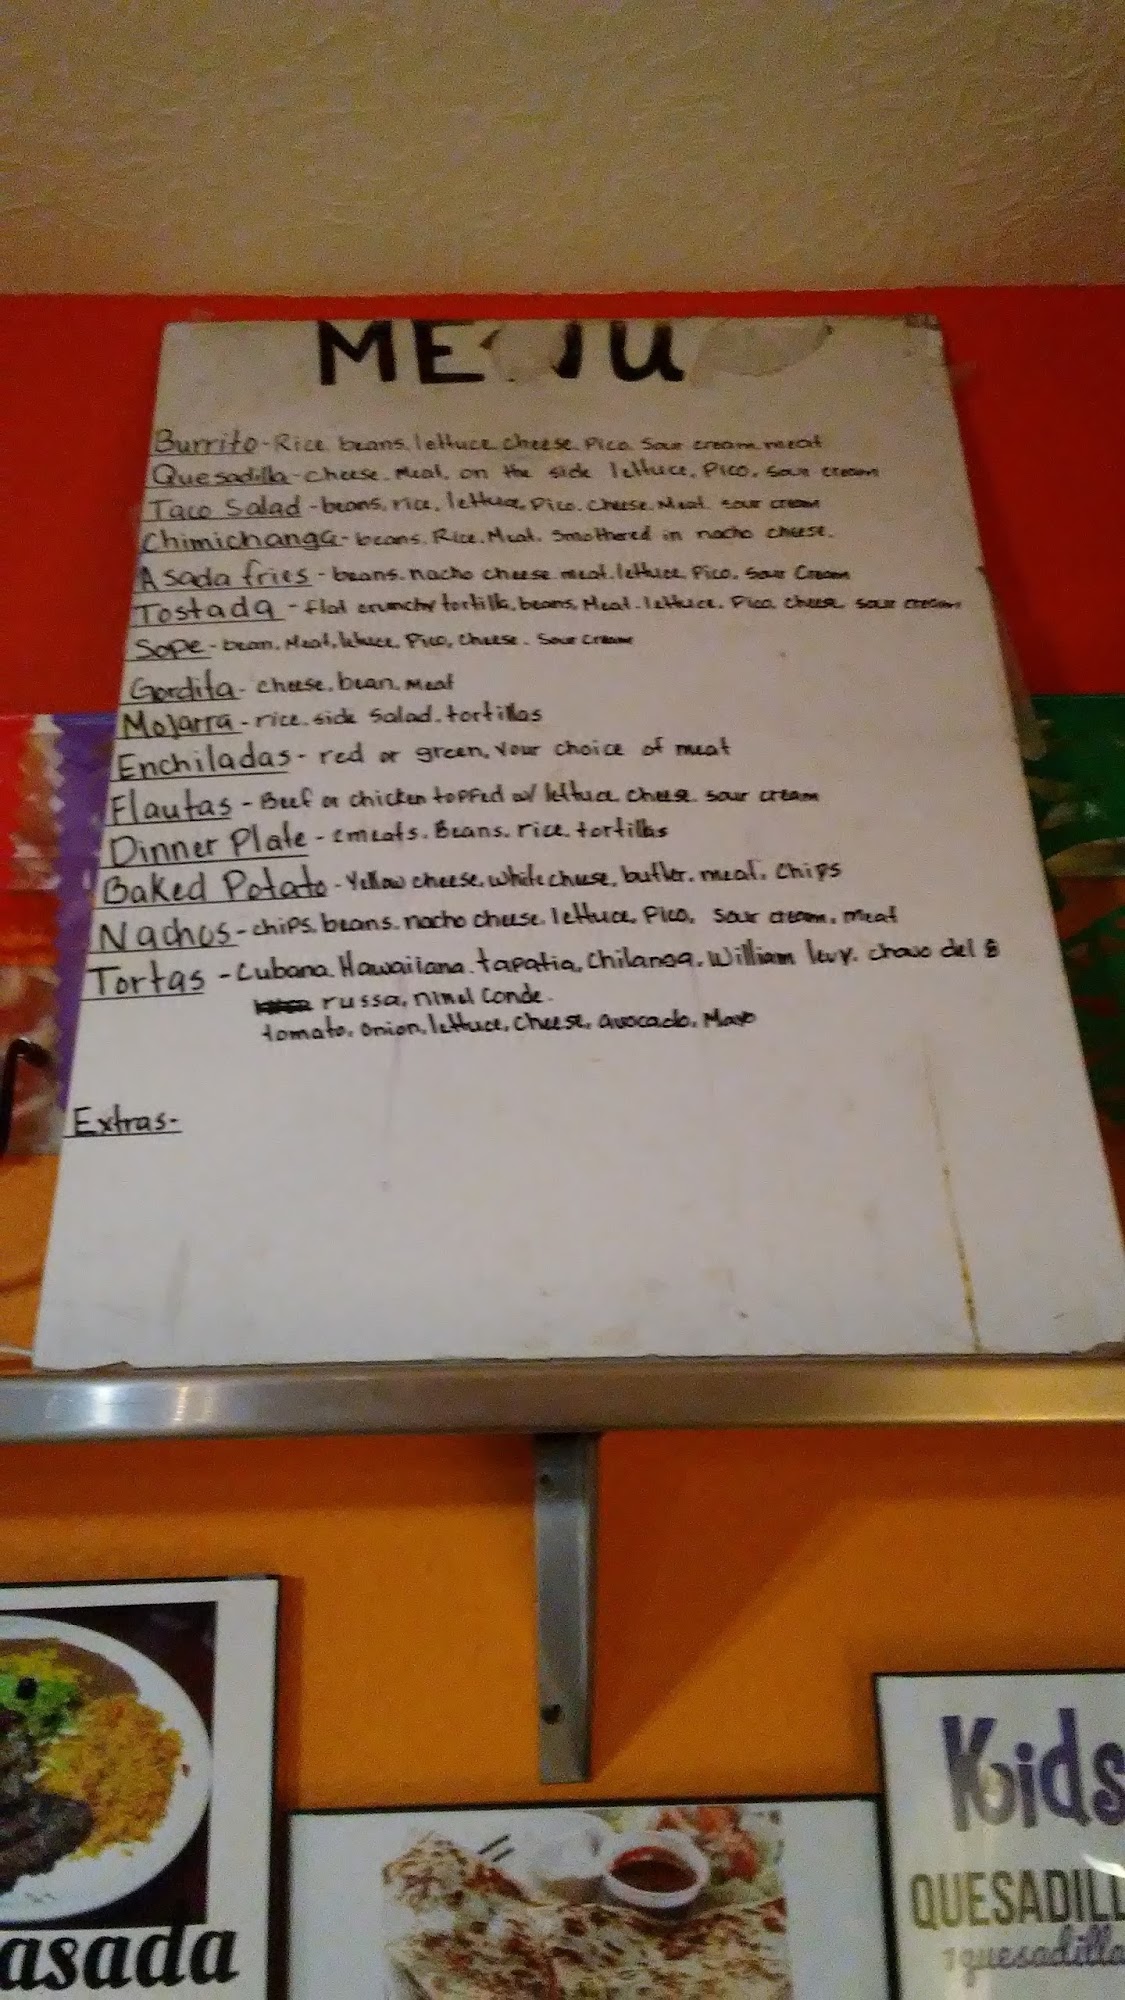 MENU
Burrito - Rice. beans. lettuce. cheese. Pico. Sour cream. meat
Quesadilla - cheese. Meat. on the side lettuce, Pico, sour cream
Taco Salad - beans, rice, lettuce, Pico. Cheese. Meat. sour cream
Chimichanga - beans. Rice. Meat. Smothered in nacho cheese.
Asada fries - beans. nacho cheese. meat. lettuce, Pico, Sour Cream
Tostada - flat crunchy tortilla, beans, Meat. lettuce. Pico. cheese. sour cream
Sope - bean. Meat, lettuce, Pico, Cheese. Sour Cream
Gordita - cheese, bean, Meat
Mojarra - rice. side salad. tortillas
Enchiladas - red or green, Your choice of meat
Flautas - Beef or chicken topped w/ lettuce cheese. sour cream
Dinner Plate - 2 meats. Beans. rice. tortillas
Baked Potato - Yellow cheese, white cheese, butter. meat. Chips
Nachos - chips. beans. nacho cheese. lettuce, Pico, sour cream, meat
Tortas - Cubana. Hawaiiana. tapatia, Chilanga, William levy. chavo del 8
russa, ninel Conde.
tomato, onion, lettuce, cheese, avocado, Mayo
Extras-
asada
Kids
QUESADILL
1 quesadilla